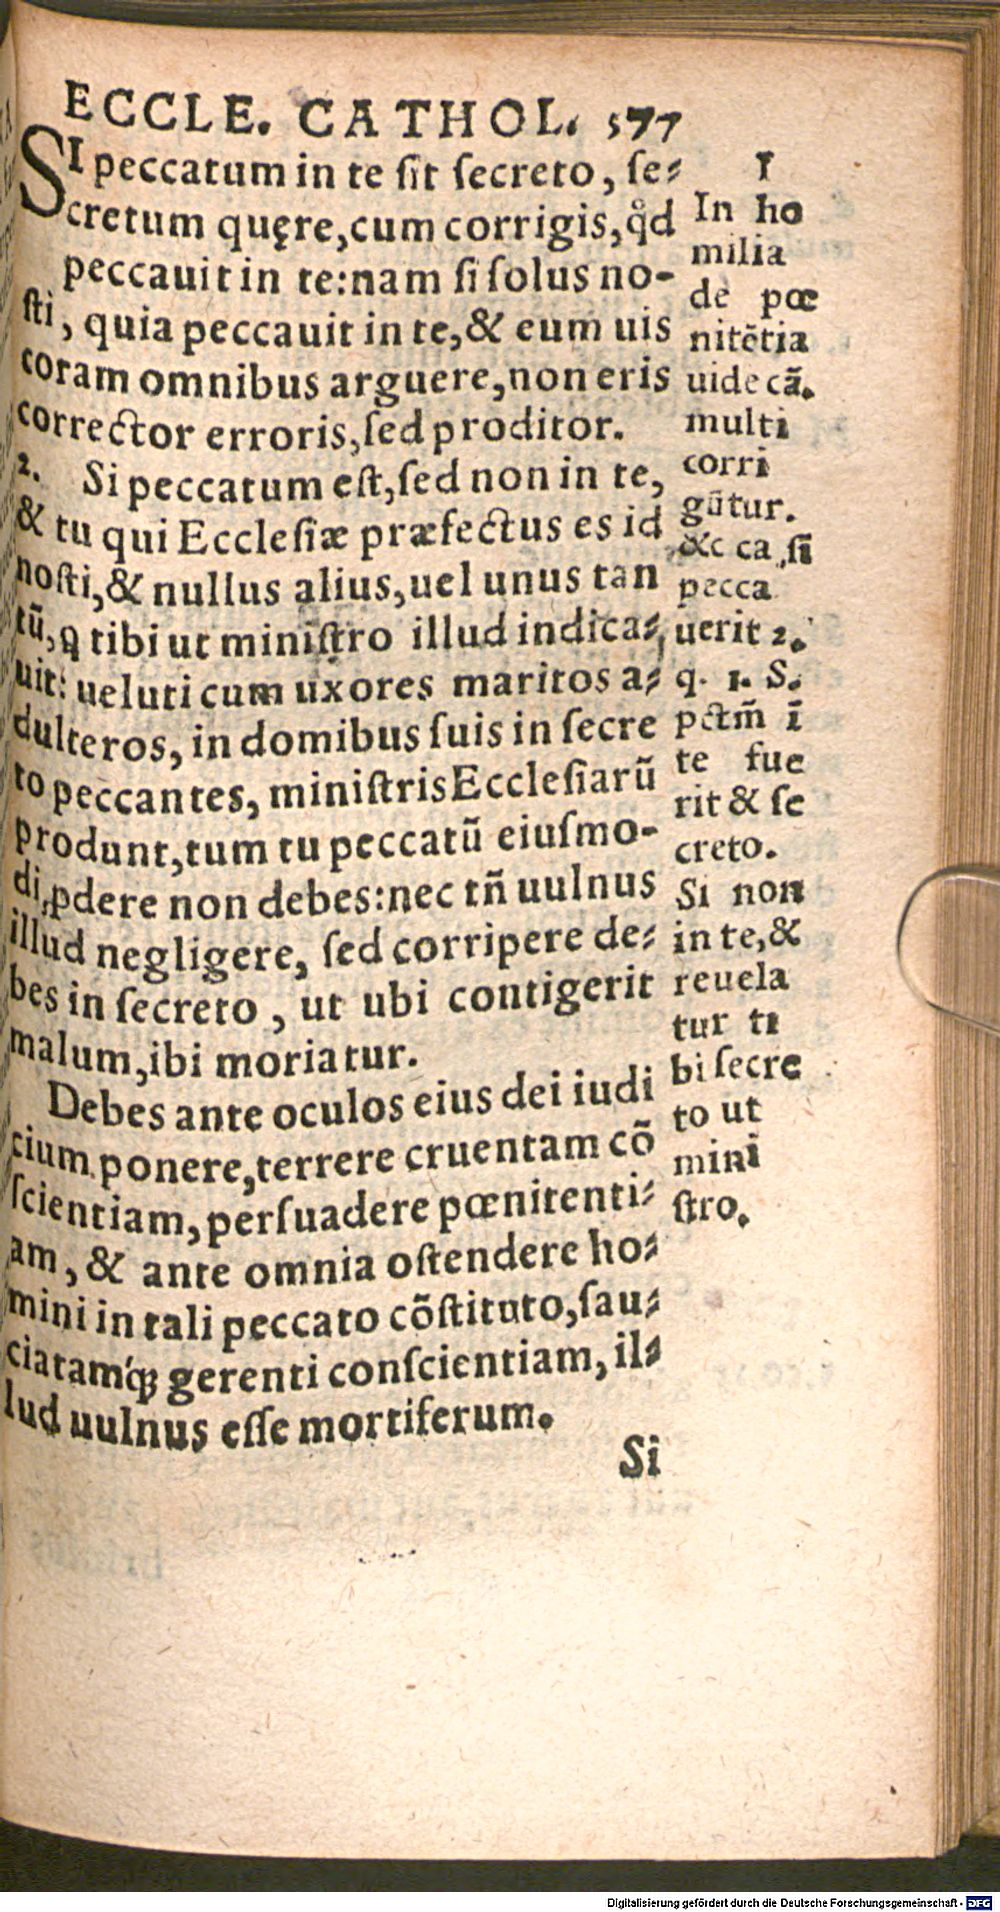 ECCLE. CATHOL. 577
SI peccatum in te sit secreto, se-
cretum quęre, cum corrigis, qd̊
peccauit in te: nam si solus no-
sti, quia peccauit in te, & eum uis
coram omnibus arguere, non eris
corrector erroris, sed proditor.
2. Si peccatum est, sed non in te,
& tu qui Ecclesiæ præfectus es id
nosti, & nullus alius, uel unus tan
tũ, ꝗ tibi ut ministro illud indica-
uit: ueluti cum uxores maritos a-
dulteros, in domibus suis in secre
to peccantes, ministris Ecclesiarũ
produnt, tum tu peccatũ eiusmo-
di ꝓdere non debes: nec tñ uulnus
illud negligere, sed corripere de-
bes in secreto, ut ubi contigerit
malum, ibi moriatur.
Debes ante oculos eius dei iudi
cium ponere, terrere cruentam cõ
scientiam, persuadere pœnitenti-
am, & ante omnia ostendere ho-
mini in tali peccato cõstituto, sau-
ciatamq́ꝫ gerenti conscientiam, il-
lud uulnus esse mortiferum.
Si
1
In ho
milia
de pœ
nitẽtia
uide cã.
multi
corri
gũtur.
&c ca, si
pecca
uerit 2.
q. 1. S.
pctm̃ ĩ
te fue
rit & se
creto.
Si non
in te, &
reuela
tur ti
bi secre
to ut
mini
stro.
Digitalisierung gefördert durch die Deutsche Forschungsgemeinschaft - DFG